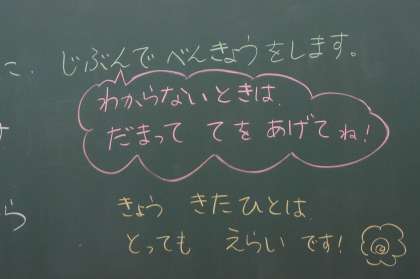 に、じぶんで べんきょうをします。
わからないときは、
だまって てを あげてね!
ら
きょう きたひとは
とっても えらい です!